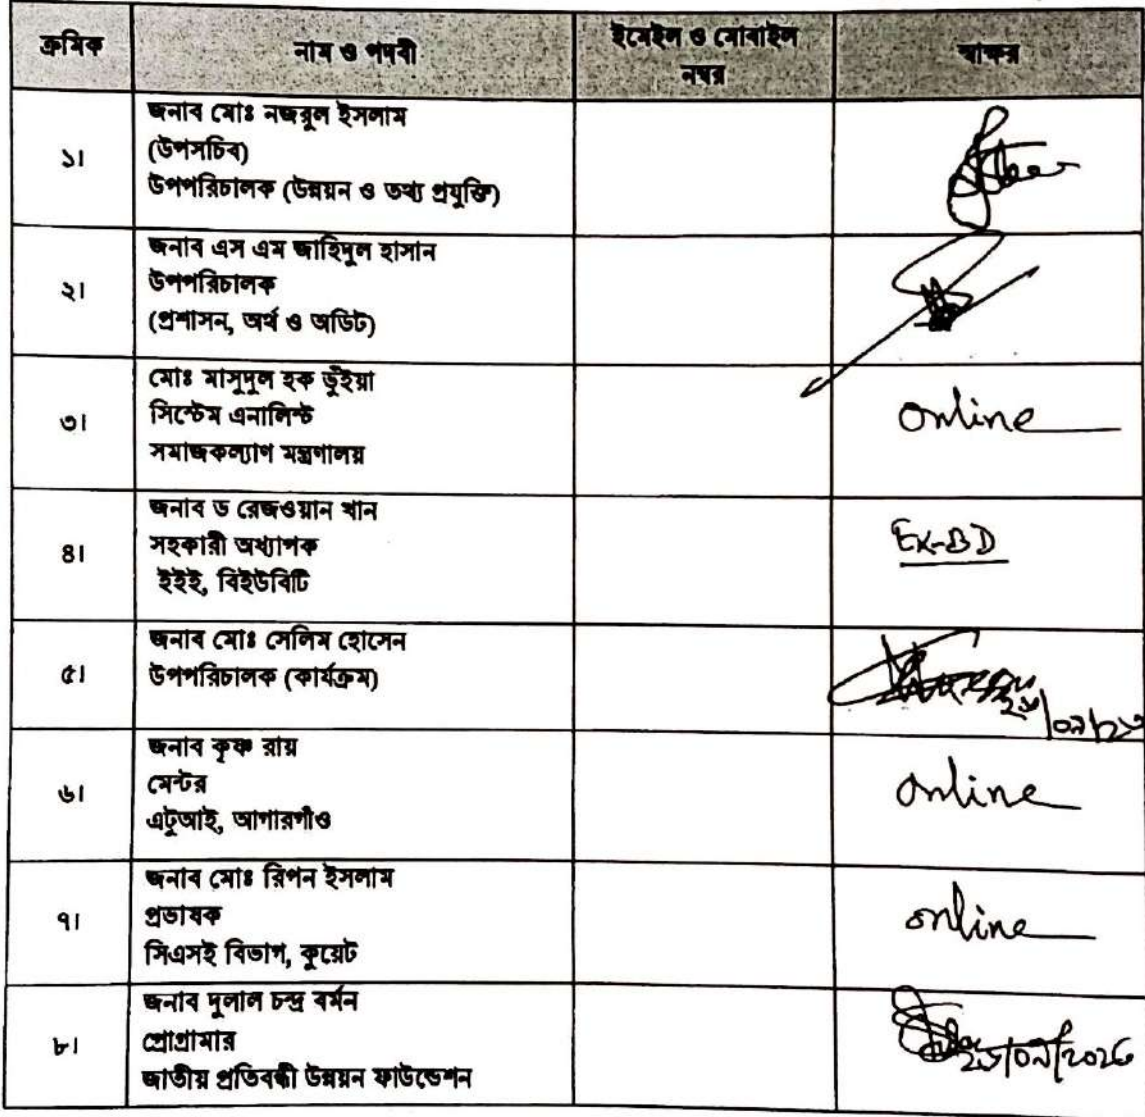 ক্রমিক
নাম ও পদবী
ইমেইল ও মোবাইল
নম্বর
স্বাক্ষর
১।
জনাব মোঃ নজরুল ইসলাম
(উপসচিব)
উপপরিচালক (উন্নয়ন ও তথ্য প্রযুক্তি)
২।
জনাব এস এম জাহিদুল হাসান
উপপরিচালক
(প্রশাসন, অর্থ ও অডিট)
৩।
মোঃ মাসুদুল হক ভূঁইয়া
সিস্টেম এনালিস্ট
সমাজকল্যাণ মন্ত্রণালয়
online
৪।
জনাব ড রেজওয়ান খান
সহকারী অধ্যাপক
ইইই, বিইউবিটি
EX-BD
৫।
জনাব মোঃ সেলিম হোসেন
উপপরিচালক (কার্যক্রম)
৬।
জনাব কৃষ্ণ রায়
মেন্টর
এটুআই, আগারগাঁও
online
৭।
জনাব মোঃ রিপন ইসলাম
প্রভাষক
সিএসই বিভাগ, কুয়েট
online
৮।
জনাব দুলাল চন্দ্র বর্মন
প্রোগ্রামার
জাতীয় প্রতিবন্ধী উন্নয়ন ফাউন্ডেশন